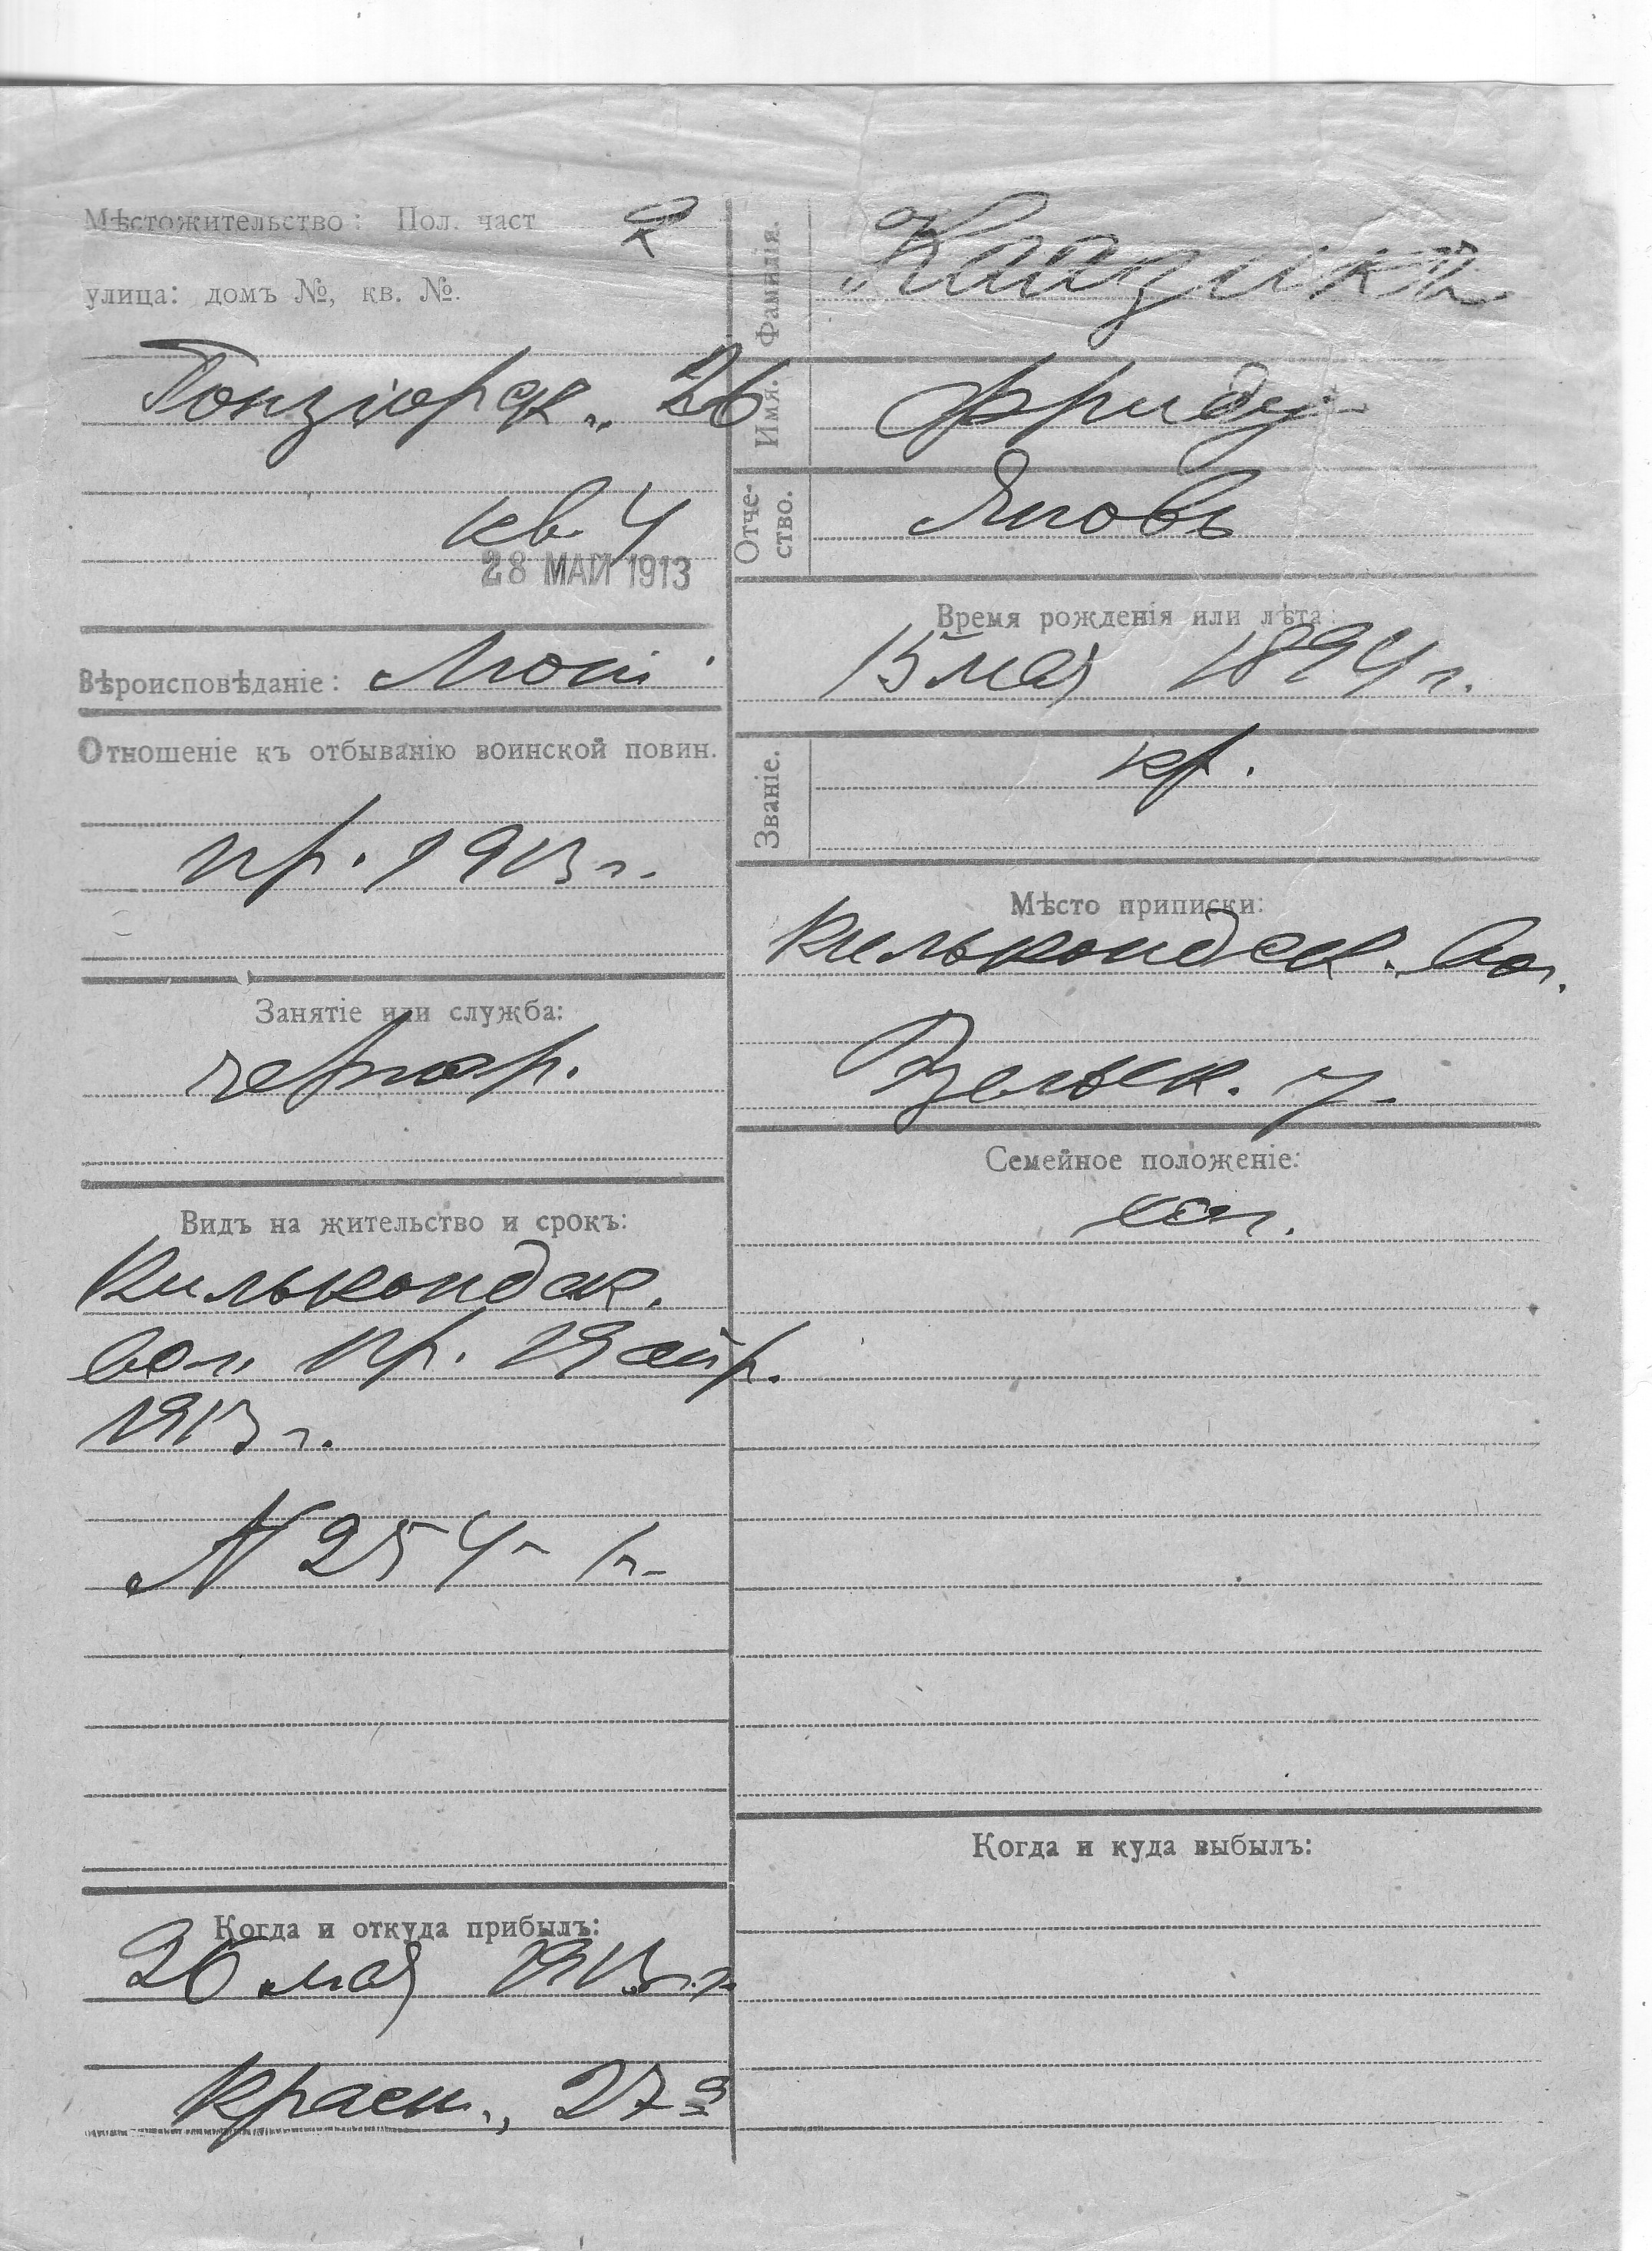 Мѣстожительство: Пол. част 2
улица: домъ №, кв. №.
Гонзіорск. 26
кв. 4
28 МАЙ 1913
Вѣроисповѣданіе: Лют.
Отношеніе къ отбыванію воинской повин.
пр. 1913 г.
Занятіе или служба:
Видъ на жительство и срокъ:
Килькондск.
вол. пр. 19 апр.
1913 г.
N 254
Когда и откуда прибылъ:
26 мая 1913 г.
Красн., 27 а
Фамилія. Каазикъ
Имя. Фриду
Отчество. Яковъ
Время рожденія или лѣта:
15 мая 1894 г.
Званіе. кр.
Мѣсто приписки:
Килькондск. вол.
Эзельск. у.
Семейное положеніе:
хол.
Когда и куда выбылъ: